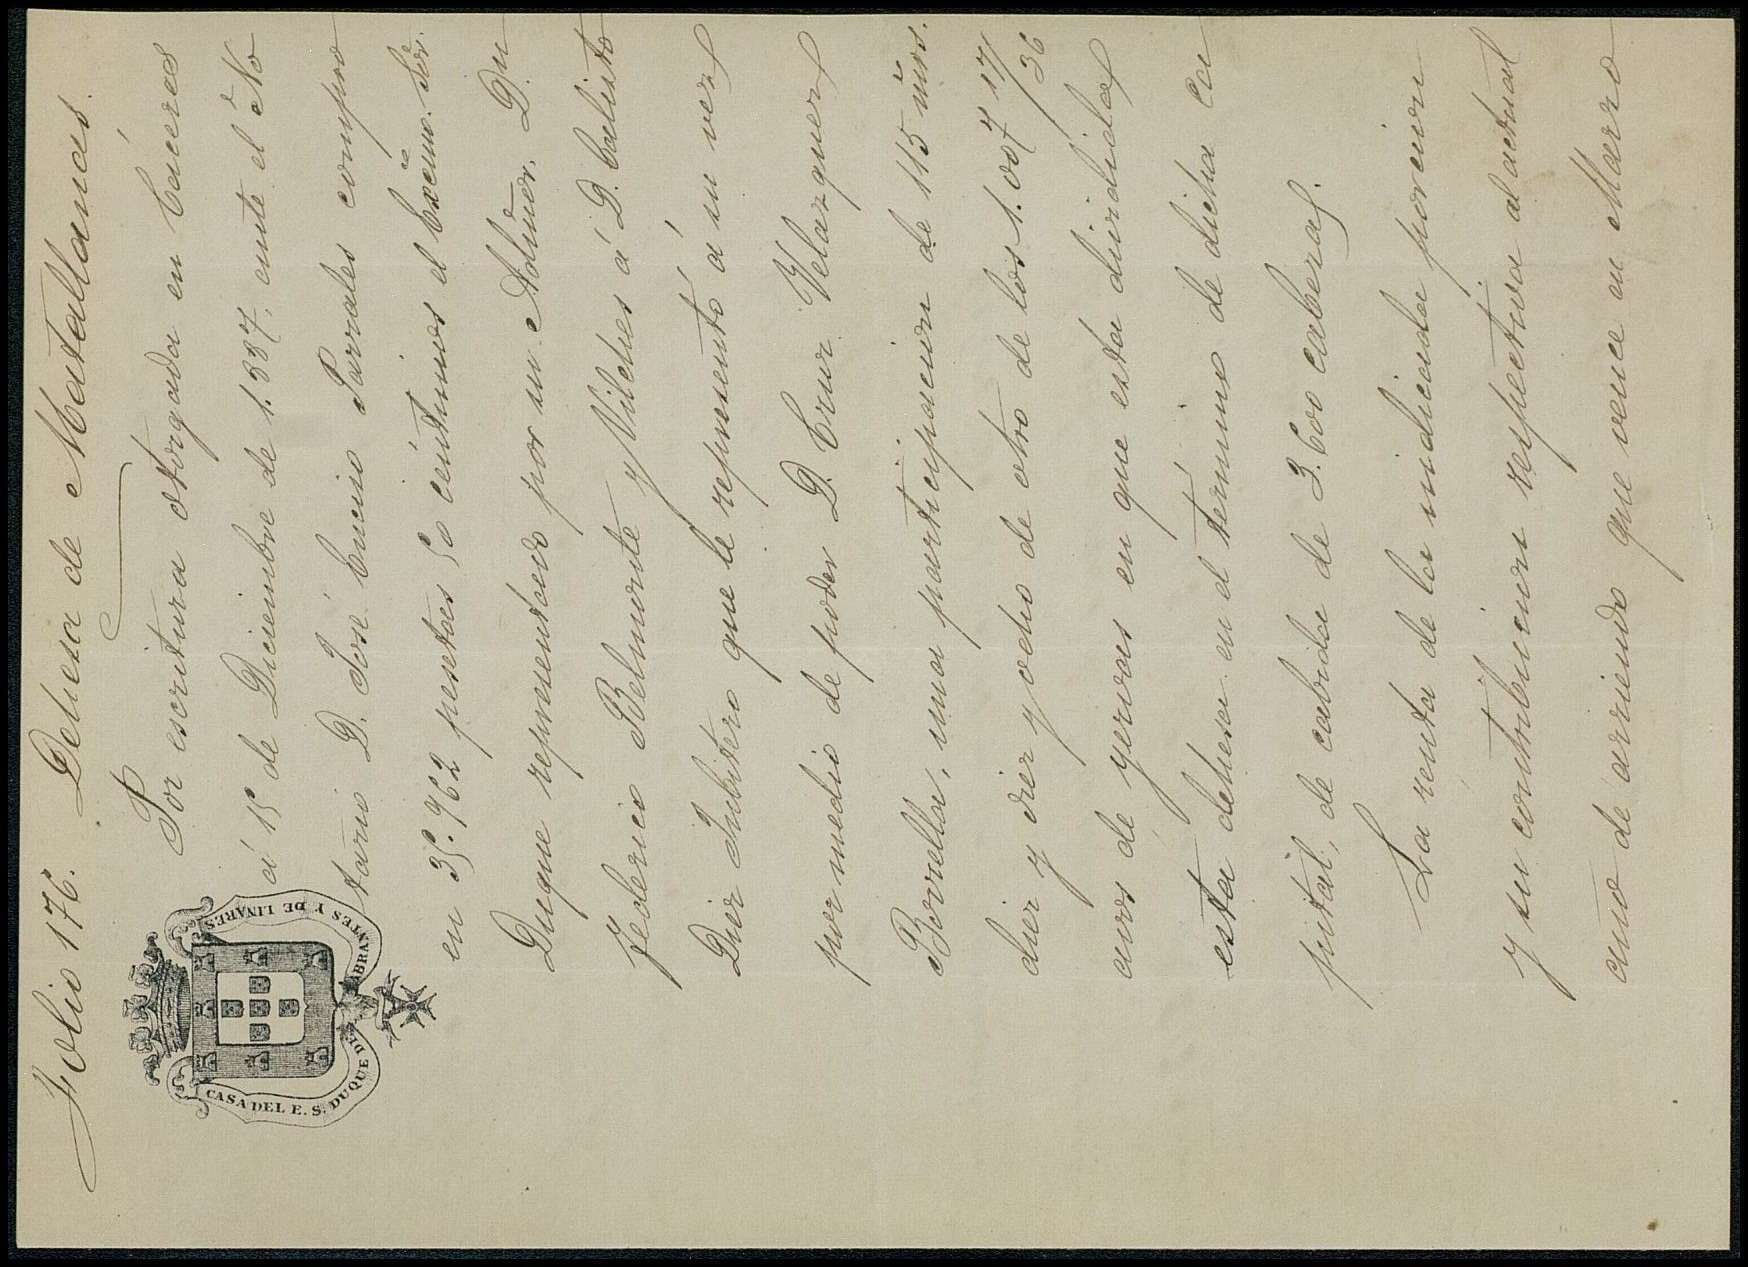 Folio 176. Dehesa de Matallanás.
CASA DEL E. S. DUQUE DE ABRANTES Y DE LINARES
Por escritura otorgada en Cáceres
á 15 de Diciembre de 1.887, ante el No
tario D. José Encinio Parrales compro
en 35.962 pesetas 50 céntimos el Excmo. Sór.
Duque representado por su Admor. Dn
Federico Belmonte y Vilches á D. Calisto
Diez Jubitero que le representó á su vez
por medio de poder D. Cruz Velazquez
Borrella, una participacion de 115 mrs.
diez y diez y ocho de otro de los 1.007 17/36
avos de yervas en que esta dividida
esta dehesa en el termino de dicha ca
pital, de cabida de 3.600 cabezas.
La renta de la indicada porcion
y su contribucion respectiva al actual
año de arriendo que vence en Marzo